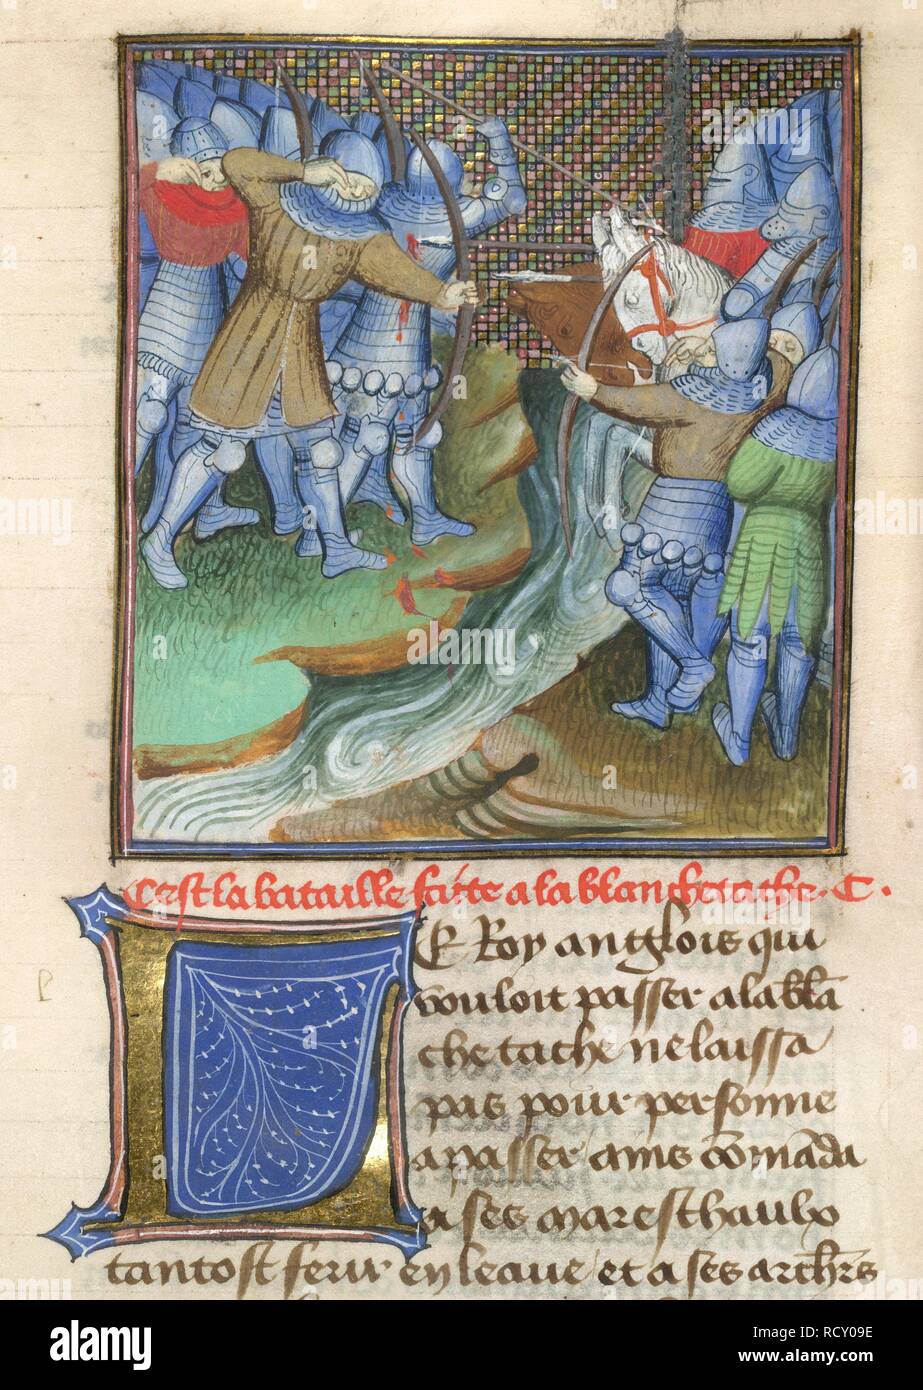 C'est la bataille faicte a la blanchetache. C.
Le Roy anglois qui
vouloit passer a la bla
che tache ne laissa
pas pour personne
a passer ains comada
a ses mareschaulx
tantost ferir en leaue et a ses archrs
alamy
alamy stock photo
Image ID: RCY09E
www.alamy.com